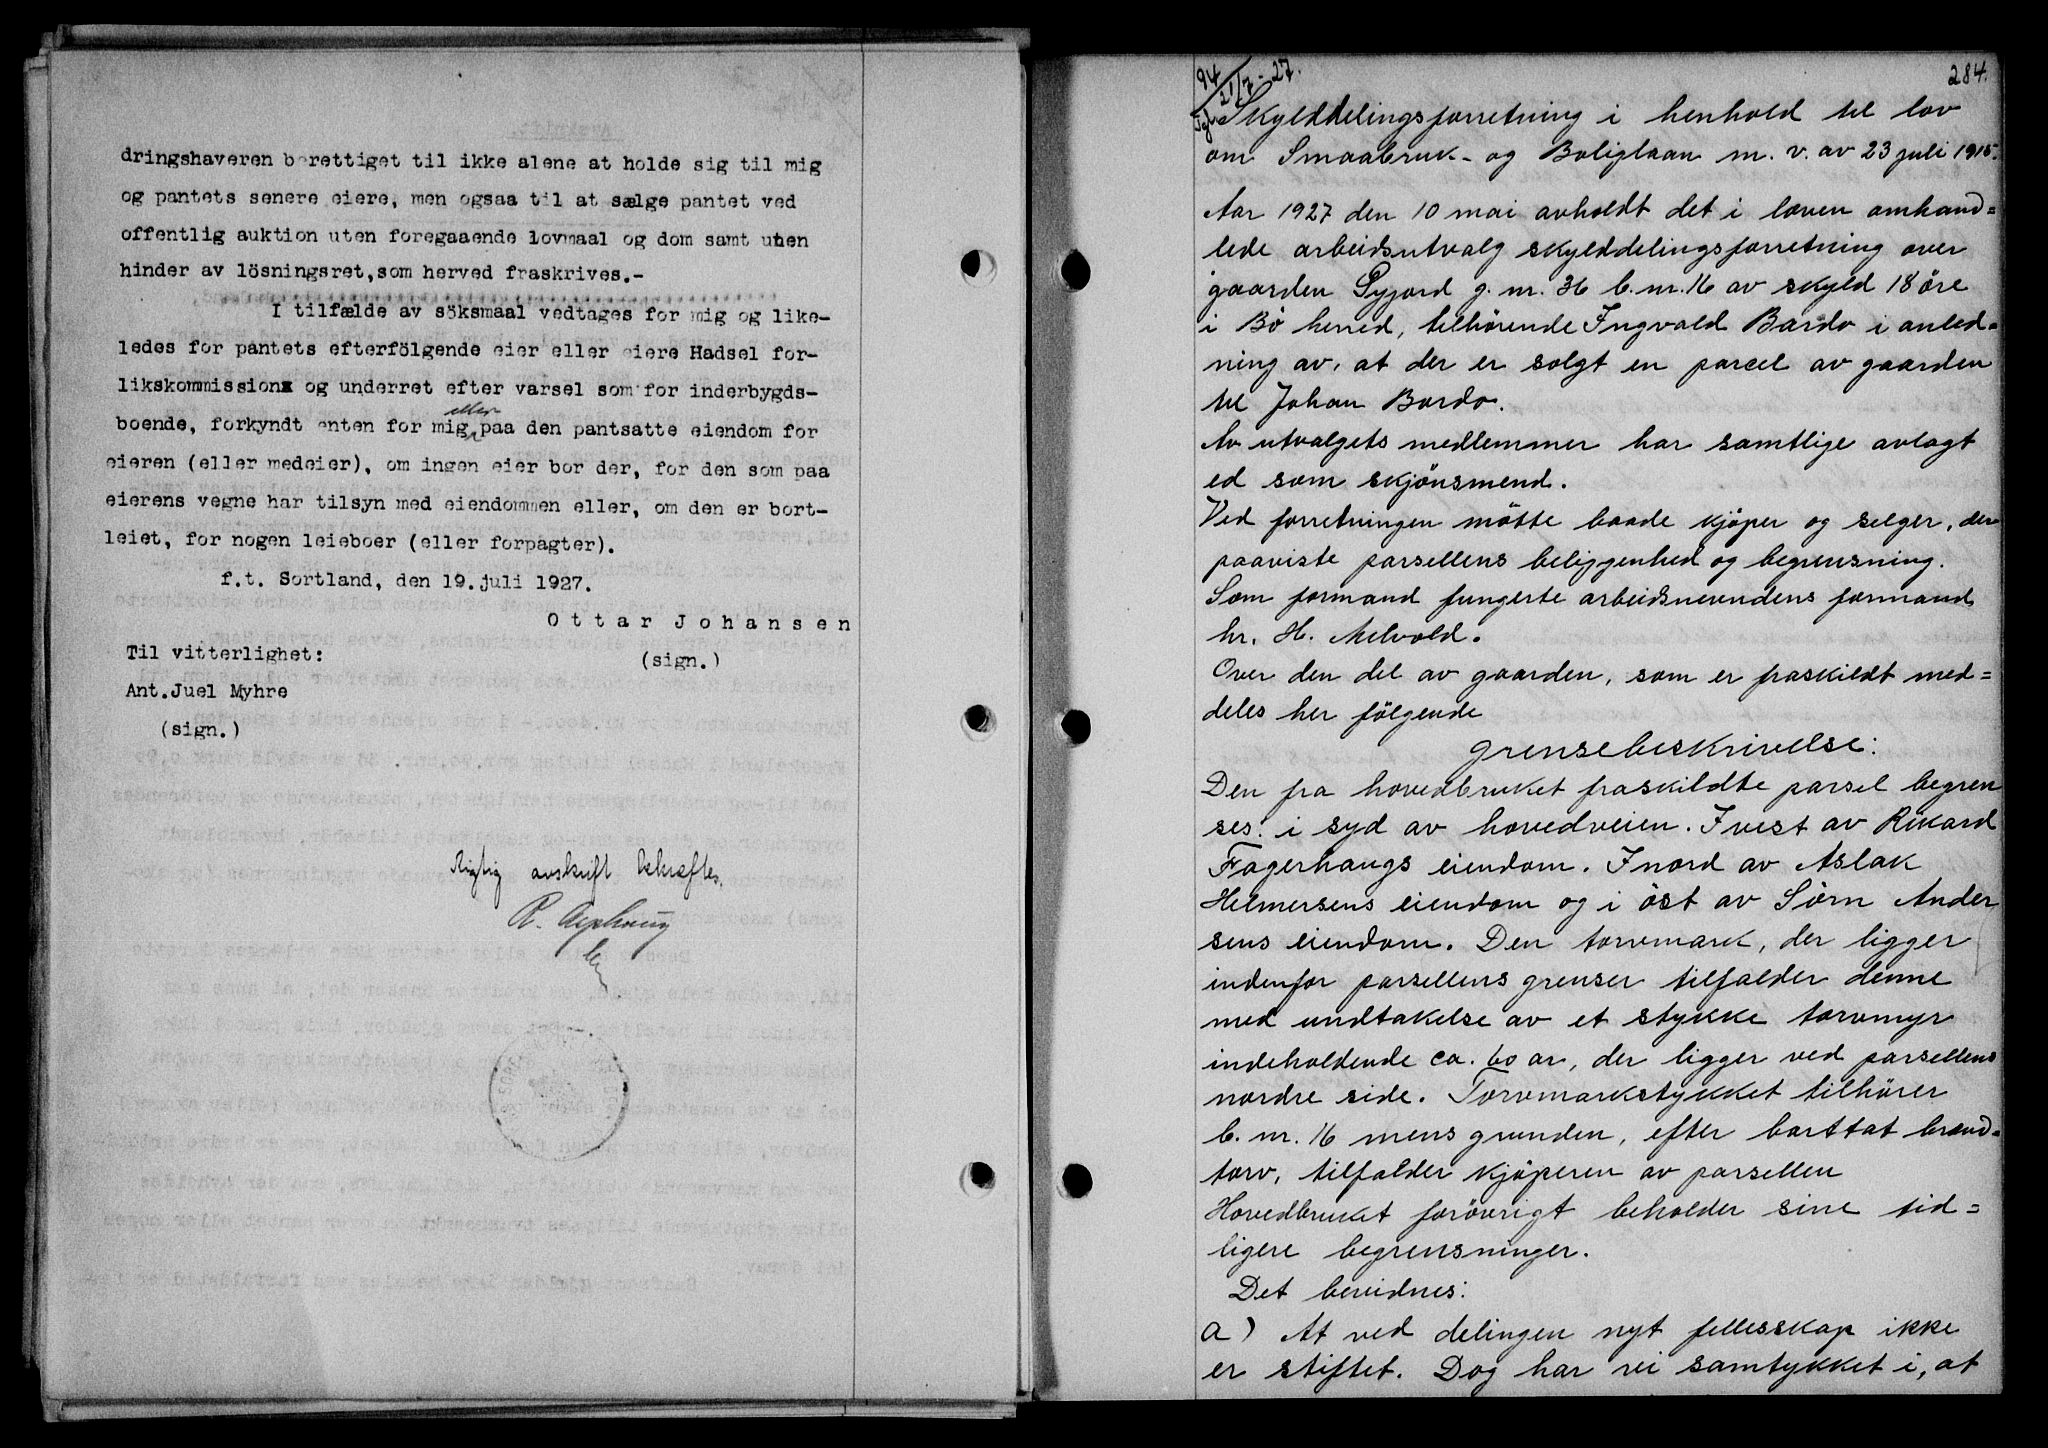 dringshaveren berettiget til ikke alene at holde sig til mig
og pantets senere eiere, men ogsaa til at sælge pantet ved
offentlig auktion uten foregaaende lovmaal og dom samt uten
hinder av lösningsret, som herved fraskrives.-
I tilfælde av söksmaal vedtages for mig og like-
ledes for pantets efterfölgende eier eller eiere Hadsel for-
likskommission og underret efter varsel som for inderbygds-
eller
boende, forkyndt enten for mig paa den pantsatte eiendom for
eieren (eller medeier), om ingen eier bor der, for den som paa
eierens vegne har tilsyn med eiendommen eller, om den er bort-
leiet, for nogen leieboer (eller forpagter).
f.t. Sortland, den 19.juli 1927.
Ottar Johansen
(sign.)
Til vitterlighet:
Ant.Juel Myhre
(sign.)
Rigtig avskrift bekræftes.
284.
94
21/7-27.
Skylddelingsforretning i henhold til lov
om Smaabruk- og Boliglaan m. v. av 23 juli 1915.
Aar 1927 den 10 mai avholdt det i loven omhand=
lede arbeidsutvalg skylddelingsforretning over
gaarden Pyjord g. nr. 36 b. nr. 16 av skyld 18 öre
i Bö herred, tilhörende Ingvald Bardo i anled=
ning av, at der er solgt en parcel av gaarden
til Johan Bardo.
Av utvalgets medlemmer har samtlige avlagt
ed som skjönsmend.
Ved forretningen mötte baade kjöper og selger, der
paaviste parsellens beliggenhed og begrensning.
Som formand fungerte arbeidsnevndens formand
hr. H. Melvold.
Over den del av gaarden, som er fraskildt med=
deles her fölgende
grensebeskrivelse:
Den fra hovedbruket fraskildte parsel begren
ses: i syd av hovedveien. I vest av Rikard
Fagerhaugs eiendom. I nord av Aslak
Helmersens eiendom og i öst av Sörn Ander
sens eiendom. Den torvmark, der ligger
indenfor parsellens grenser tilfalder denne
med undtakelse av et stykke torvmyr
indeholdende ca. 60 ar, der ligger ved parsellens
nordre side. Torvmarkstykket tilhörer
b. nr. 16 mens grunden, efter borttat brend=
torv, tilfalder kjöperen av parsellen
Hovedbruket forövrigt beholder sine tid=
ligere begrensninger.
Det bevidnes:
a) At ved delingen nyt fellesskap ikke
er stiftet. Dog har vi samtykket i, at